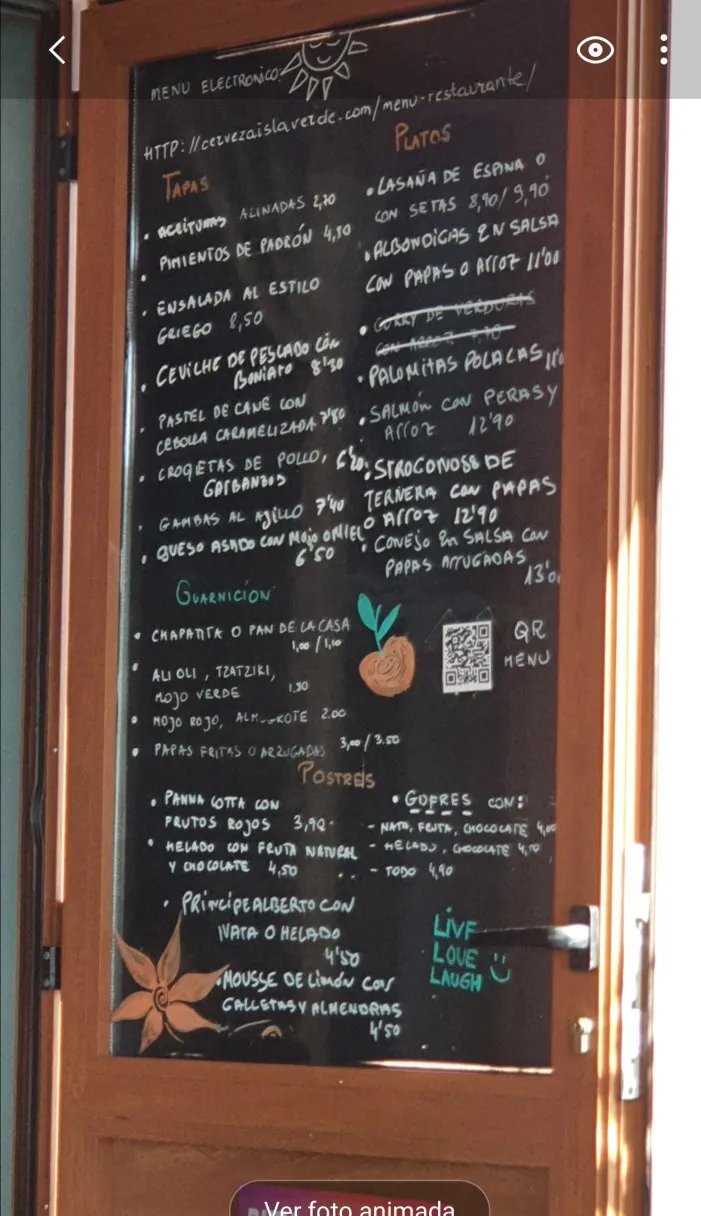 MENU ELECTRONICO:
HTTP://cervezaislaverde.com/menu-restaurante/
TAPAS
• ACEITUNAS ALINADAS 2,70
• PIMIENTOS DE PADRÓN 4,50
• ENSALADA AL ESTILO
GRIEGO 8,50
• CEVICHE DE PESCADO CON
BONIATO 8'30
• PASTEL DE CANE CON
CEBOLLA CARAMELIZADA 7'80
• CROQUETAS DE POLLO,
GARBANZOS
• GAMBAS AL AJILLO 7'40
• QUESO ASADO CON MOJO O MIEL
6'50
PLATOS
• LASAÑA DE ESPINA O
CON SETAS 8,90/9,90
• ALBONDIGAS EN SALSA
CON PAPAS O ARROZ 11'00
• CURRY DE VERDURAS
CON ARROZ
• PALOMITAS POLACAS
• SALMÓN CON PERAS Y
ARROZ 12'90
• STROGONOFF DE
TERNERA CON PAPAS
O ARROZ 12'90
• CONEJO EN SALSA CON
PAPAS ARRUGADAS
GUARNICIÓN
• CHAPATITA O PAN DE LA CASA
1,00/1,10
• ALI OLI, TZATZIKI,
MOJO VERDE
• MOJO ROJO, ALMOGROTE 2.00
• PAPAS FRITAS O ARRUGADAS 3,00/3.50
QR
MENU
POSTRES
• PANNA COTTA CON
FRUTOS ROJOS 3,90
• HELADO CON FRUTA NATURAL
Y CHOCOLATE 4,50
• GOFRES CON:
- NATA, FRUTA, CHOCOLATE 4,00
- HELADO, CHOCOLATE
- TODO 4,90
• PRÍNCIPE ALBERTO CON
NATA O HELADO
4'50
• MOUSSE DE LIMÓN CON
GALLETAS Y ALMENDRAS
4'50
LIVE
LOVE
LAUGH
Ver foto animada